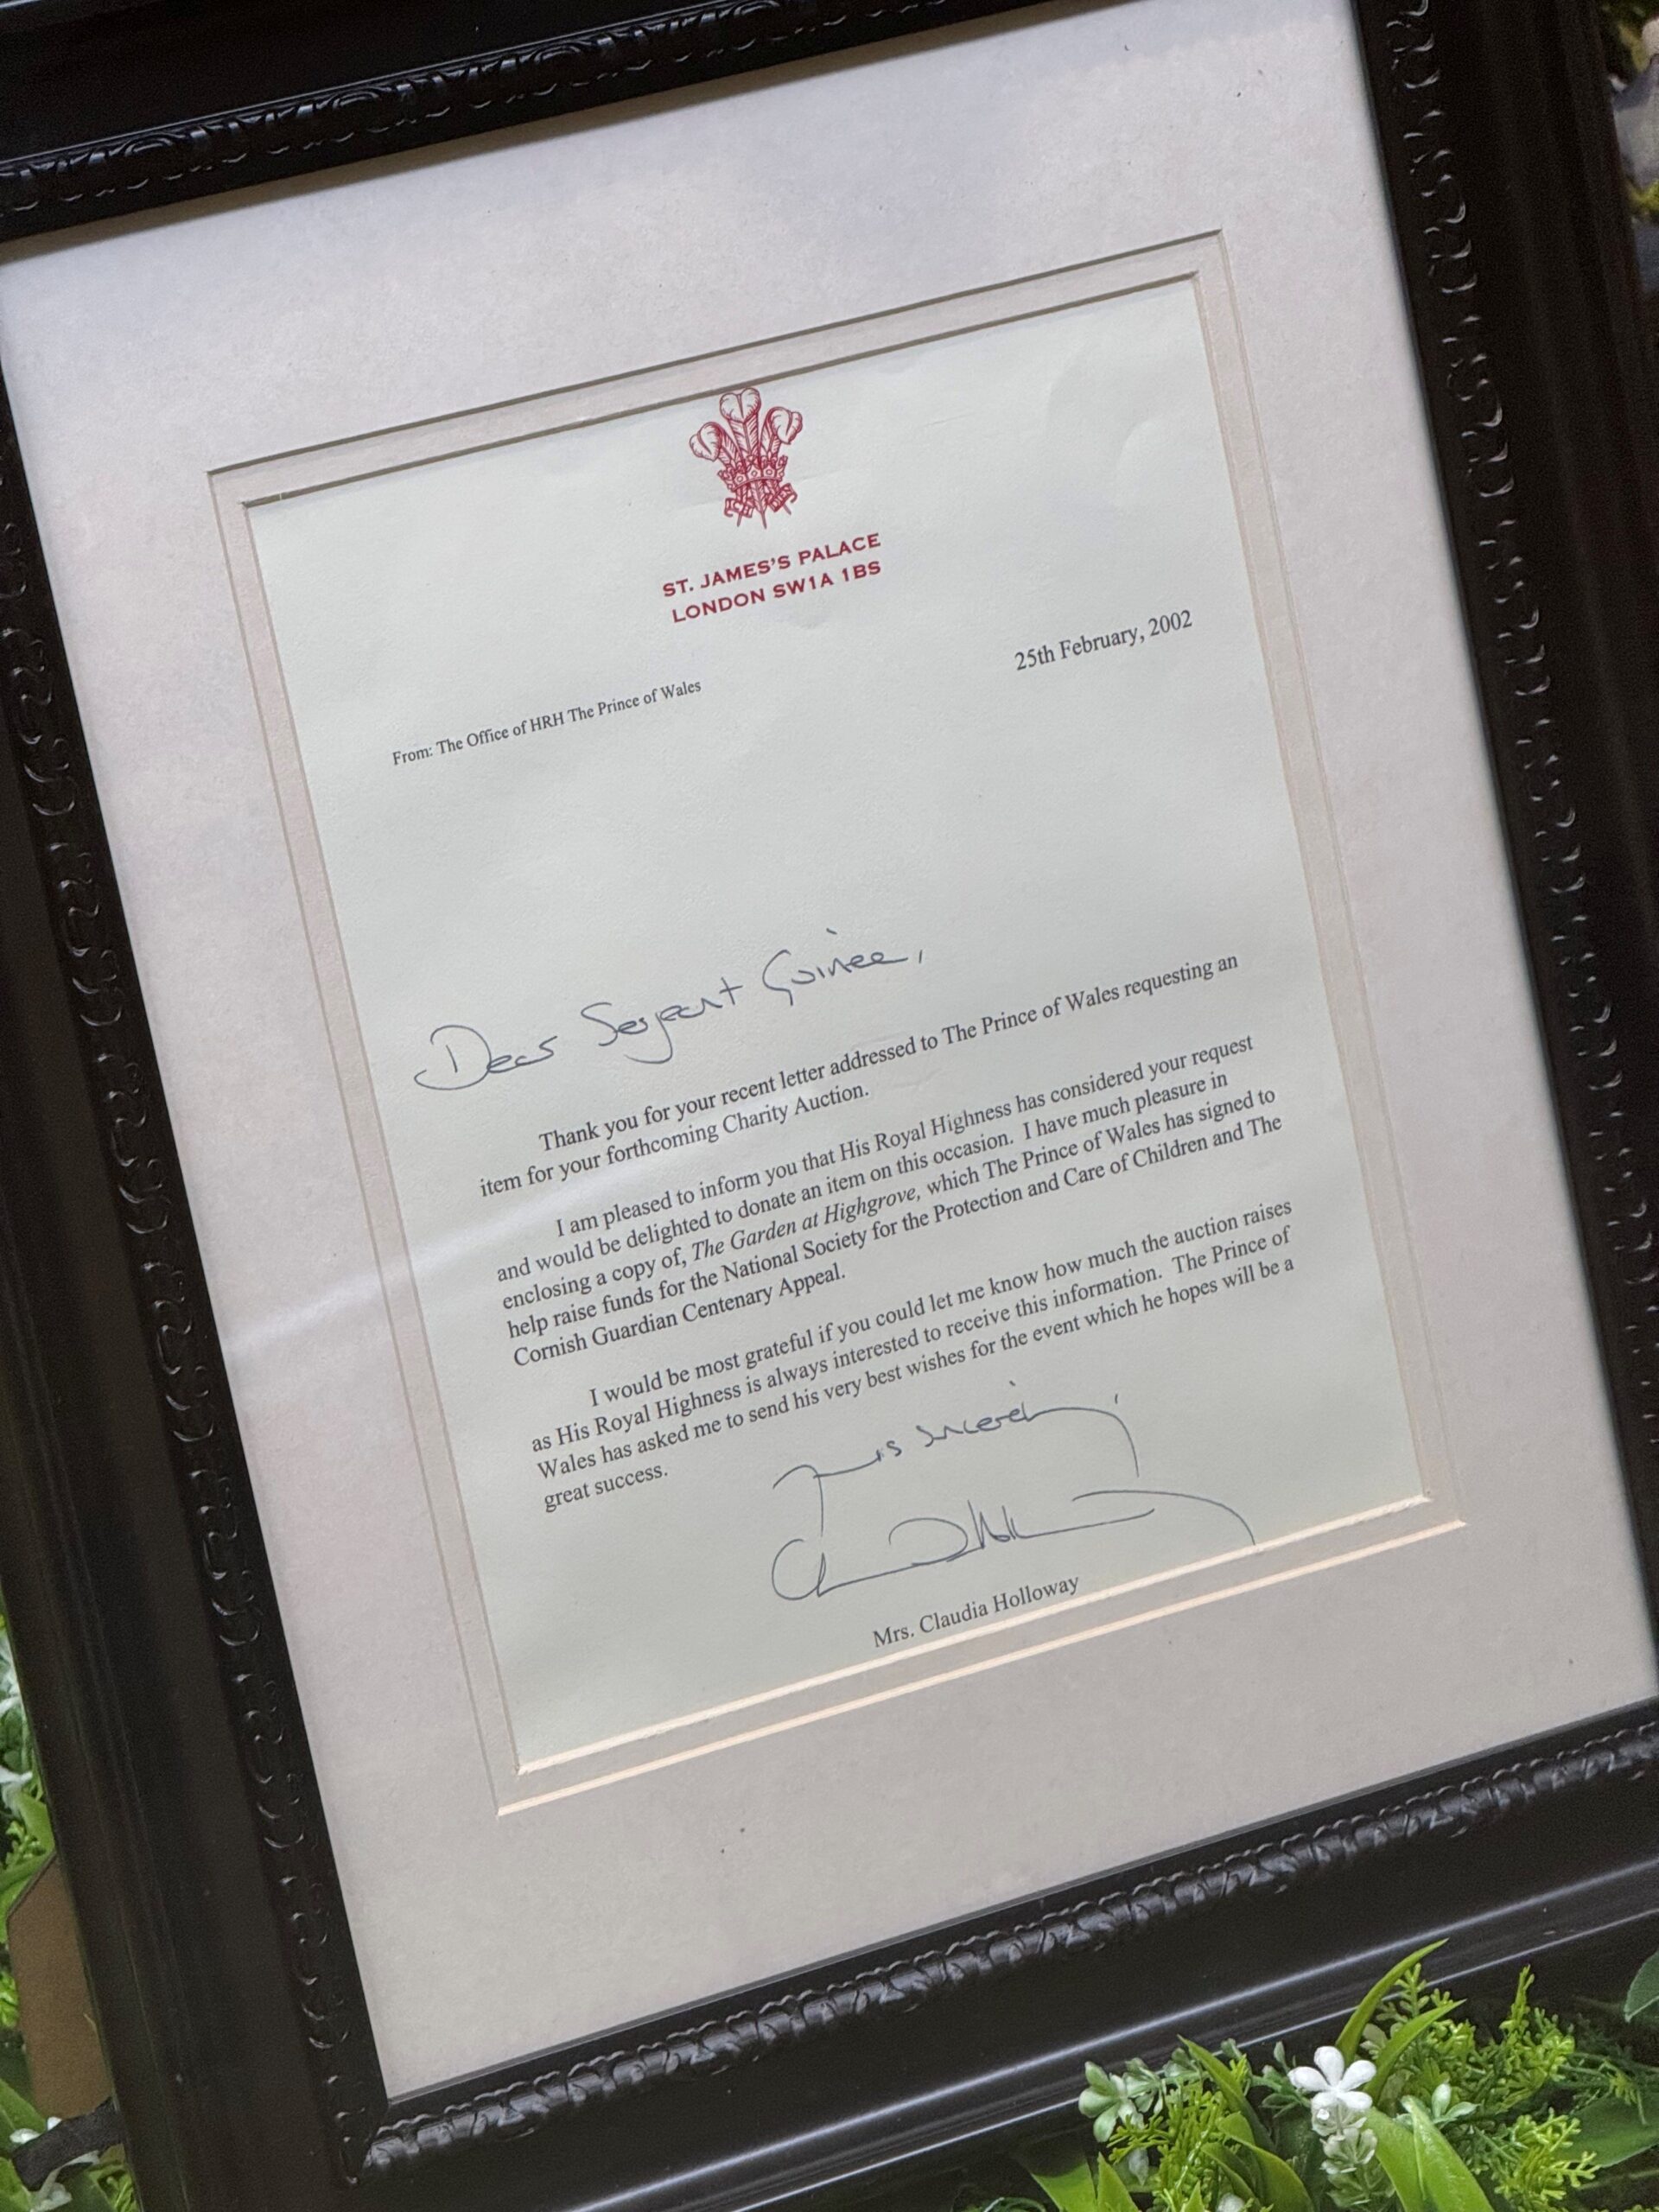 ST. JAMES'S PALACE
LONDON SW1A 1BS
25th February, 2002
From: The Office of HRH The Prince of Wales
Dear Sergeant Guinee,
Thank you for your recent letter addressed to The Prince of Wales requesting an
item for your forthcoming Charity Auction.
I am pleased to inform you that His Royal Highness has considered your request
and would be delighted to donate an item on this occasion. I have much pleasure in
enclosing a copy of, The Garden at Highgrove, which The Prince of Wales has signed to
help raise funds for the National Society for the Protection and Care of Children and The
Cornish Guardian Centenary Appeal.
I would be most grateful if you could let me know how much the auction raises
as His Royal Highness is always interested to receive this information. The Prince of
Wales has asked me to send his very best wishes for the event which he hopes will be a
great success.
Yours sincerely,
Mrs. Claudia Holloway